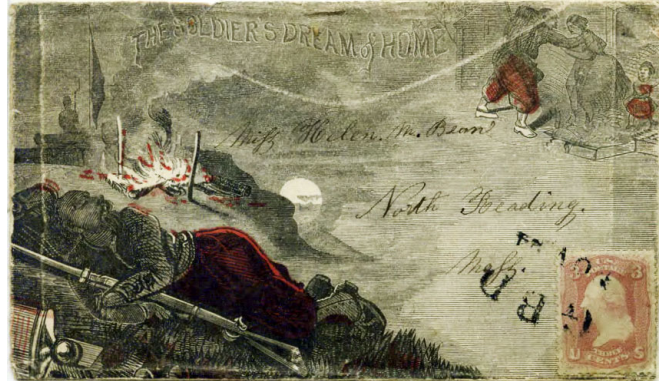 THE SOLDIER'S DREAM of HOME
Miss Helen. M. Bean
North Reading.
Mass.
3
THREE
CENTS
U S